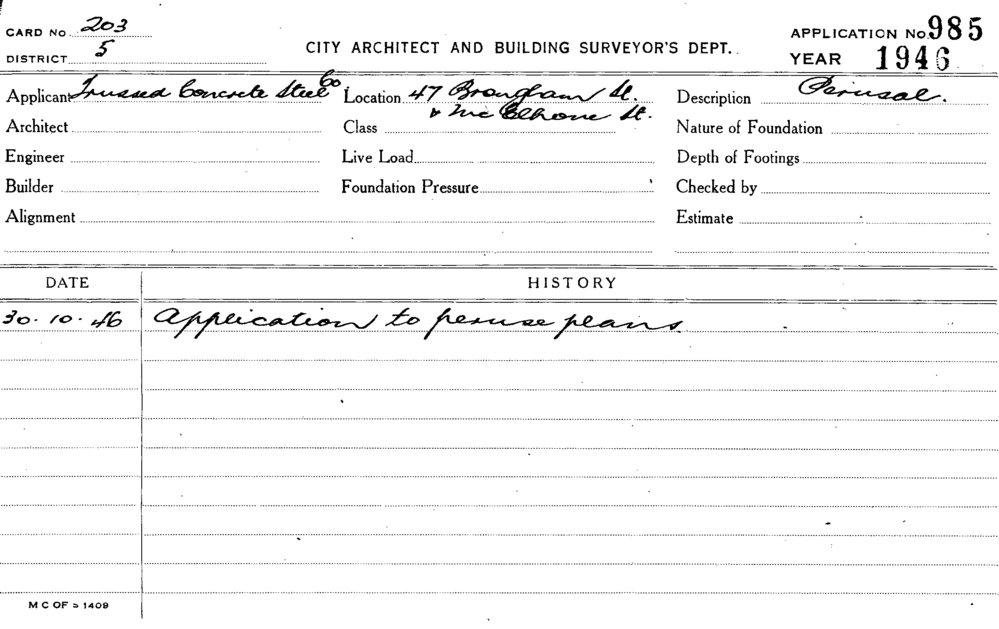 CARD No. 203
DISTRICT 5
CITY ARCHITECT AND BUILDING SURVEYOR'S DEPT.
APPLICATION No. 985
YEAR 1946
Applicant Trussed Concrete Steel Co
Location 47 Brougham St.
& McElhone St.
Description Perusal.
Architect
Class
Nature of Foundation
Engineer
Live Load
Depth of Footings
Builder
Foundation Pressure
Checked by
Alignment
Estimate
DATE HISTORY
30.10.46 Application to peruse plans.
M C OF S 1409